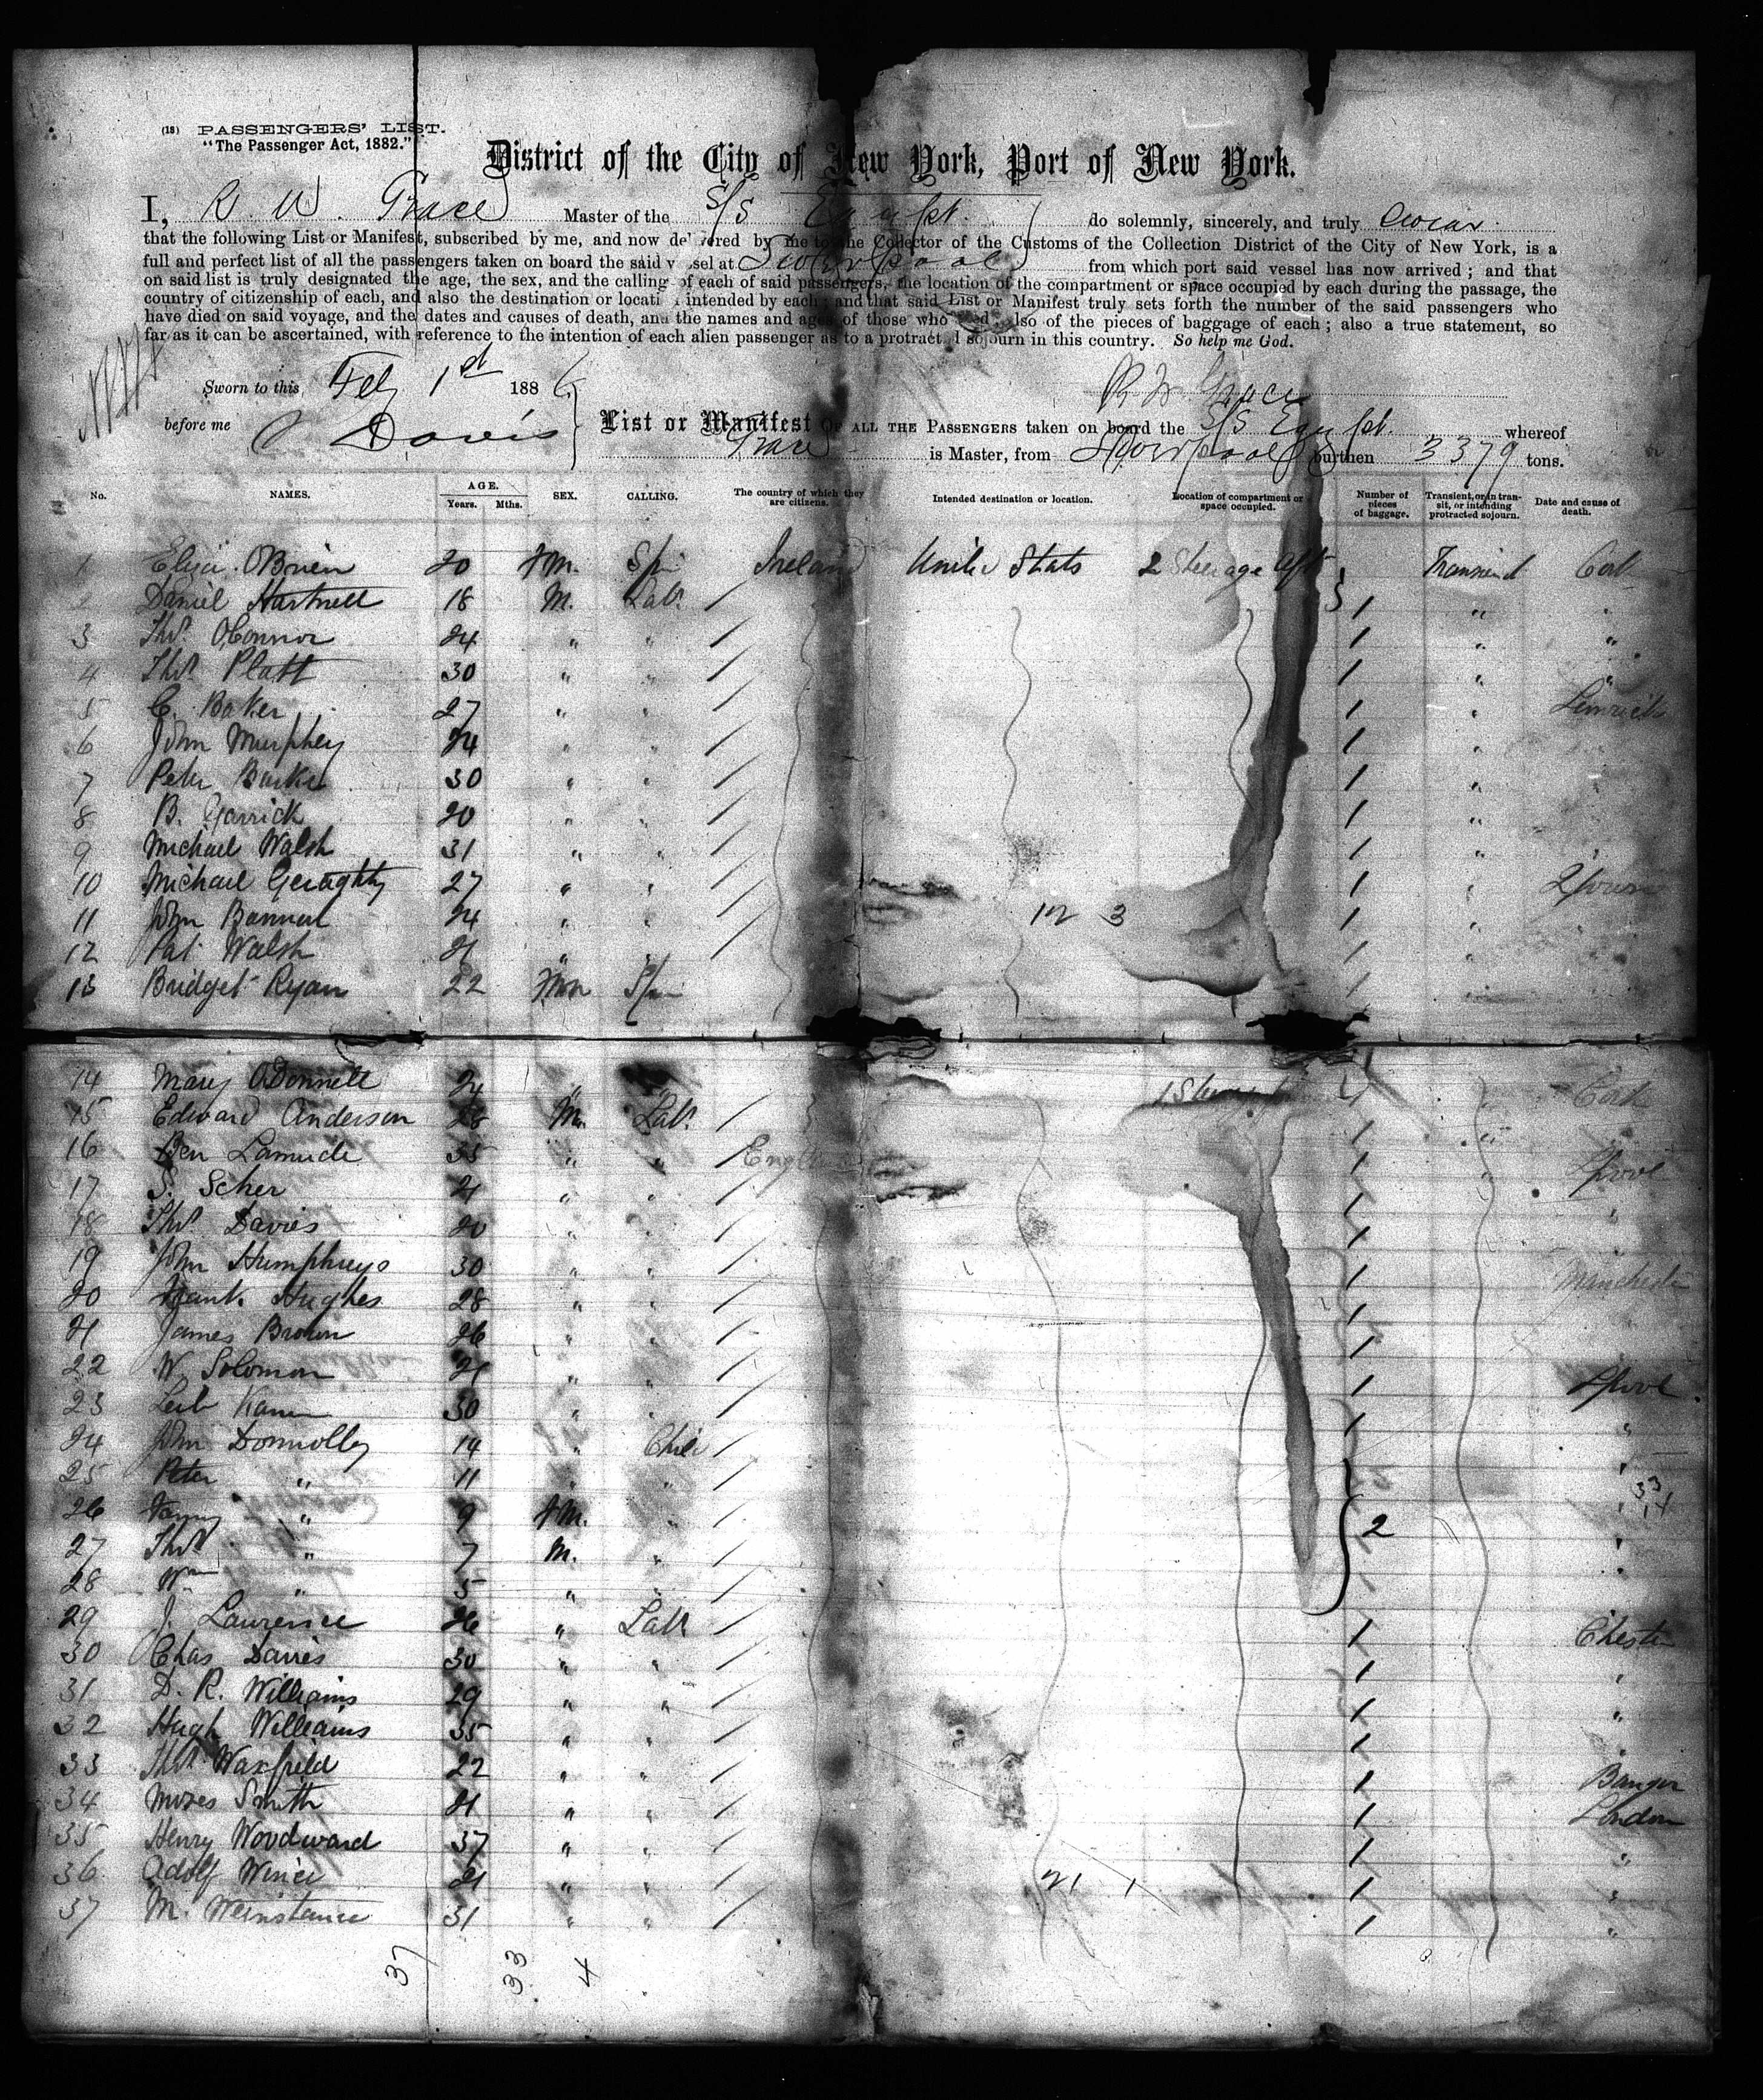 (18) PASSENGERS' LIST.
"The Passenger Act, 1882."
District of the City of New York, Port of New York.
I, R. W. Grace Master of the S/S Egypt do solemnly, sincerely, and truly swear
that the following List or Manifest, subscribed by me, and now delivered by me to the Collector of the Customs of the Collection District of the City of New York, is a
full and perfect list of all the passengers taken on board the said vessel at Liverpool from which port said vessel has now arrived; and that
on said list is truly designated the age, the sex, and the calling of each of said passengers, the location of the compartment or space occupied by each during the passage, the
country of citizenship of each, and also the destination or location intended by each; and that said List or Manifest truly sets forth the number of the said passengers who
have died on said voyage, and the dates and causes of death, and the names and ages of those who died also of the pieces of baggage of each; also a true statement, so
far as it can be ascertained, with reference to the intention of each alien passenger as to a protracted sojourn in this country. So help me God.
Sworn to this Feby 1st 1886 R W Grace
before me Davis List or Manifest OF ALL THE PASSENGERS taken on board the S/S Egypt whereof
Grace is Master, from Liverpool burthen 3379 tons.
No. NAMES. AGE. Years. Mths. SEX. CALLING. The country of which they are citizens. Intended destination or location. Location of compartment or space occupied. Number of pieces of baggage. Transient, or in transit, or intending protracted sojourn. Date and cause of death.
1 Eliza O'Brien 20 Fm. Spin Ireland United States 2 Steerage Aft Transient Cork
2 Daniel Hartnell 18 M. Lab. / 1 " "
3 Thos O'Connor 24 " " / 1 " "
4 Thos Platt 30 " " / 1 " "
5 C. Baker 27 " " / 1 " Limrick
6 John Murphey 24 " " / 1 "
7 Peter Burke 30 " " / 1 "
8 B. Garrick 20 " " / 1 "
9 Michael Walsh 31 " " / 1 "
10 Michael Geraghty 27 " " / 1 "
11 John Bannad 24 " " / 1 "
12 3
12 Pat Walsh 21 " " / 1 "
13 Bridget Ryan 22 Fm Spin 1
14 Mary O'Donnell 24 " 1 Cork
15 Edward Anderson 28 M. Lab. / 1 "
16 Ben Lamude 35 " " / Engl 1 " Lpool
17 S. Scher 21 " " / 1 "
18 Thos Davies 20 " " / 1
19 John Humphreys 30 " " / 1 Manchester
20 Frank Hughes 28 " " / 1
21 James Brown 26 " " / 1
22 W. Solomon 21 " " / 1 Lpool
23 Leib Kanen 30 " " / 1 "
24 John Donnolley 14 " Child / "
25 Peter " 11 " " /
33
4
26 Fanny " 9 Fm. " / 2 "
27 Thos " 7 M. " / "
28 Wm " 5 " /
29 J. Laurence 26 " Lab / 1 Chester
30 Chas Davies 30 " " / 1 "
31 D. R. Williams 29 " " / 1 "
32 Hugh Williams 35 " " / 1 "
33 Thos Waxfield 22 " " / 1 Bangor
34 Moses Smith 21 " " / 1 London
35 Henry Woodward 37 " " / 1 "
36 Adolf Wince 21 " " / 21 1 1 "
37 M. Weinstance 31 " " / 1 "
37 33 4